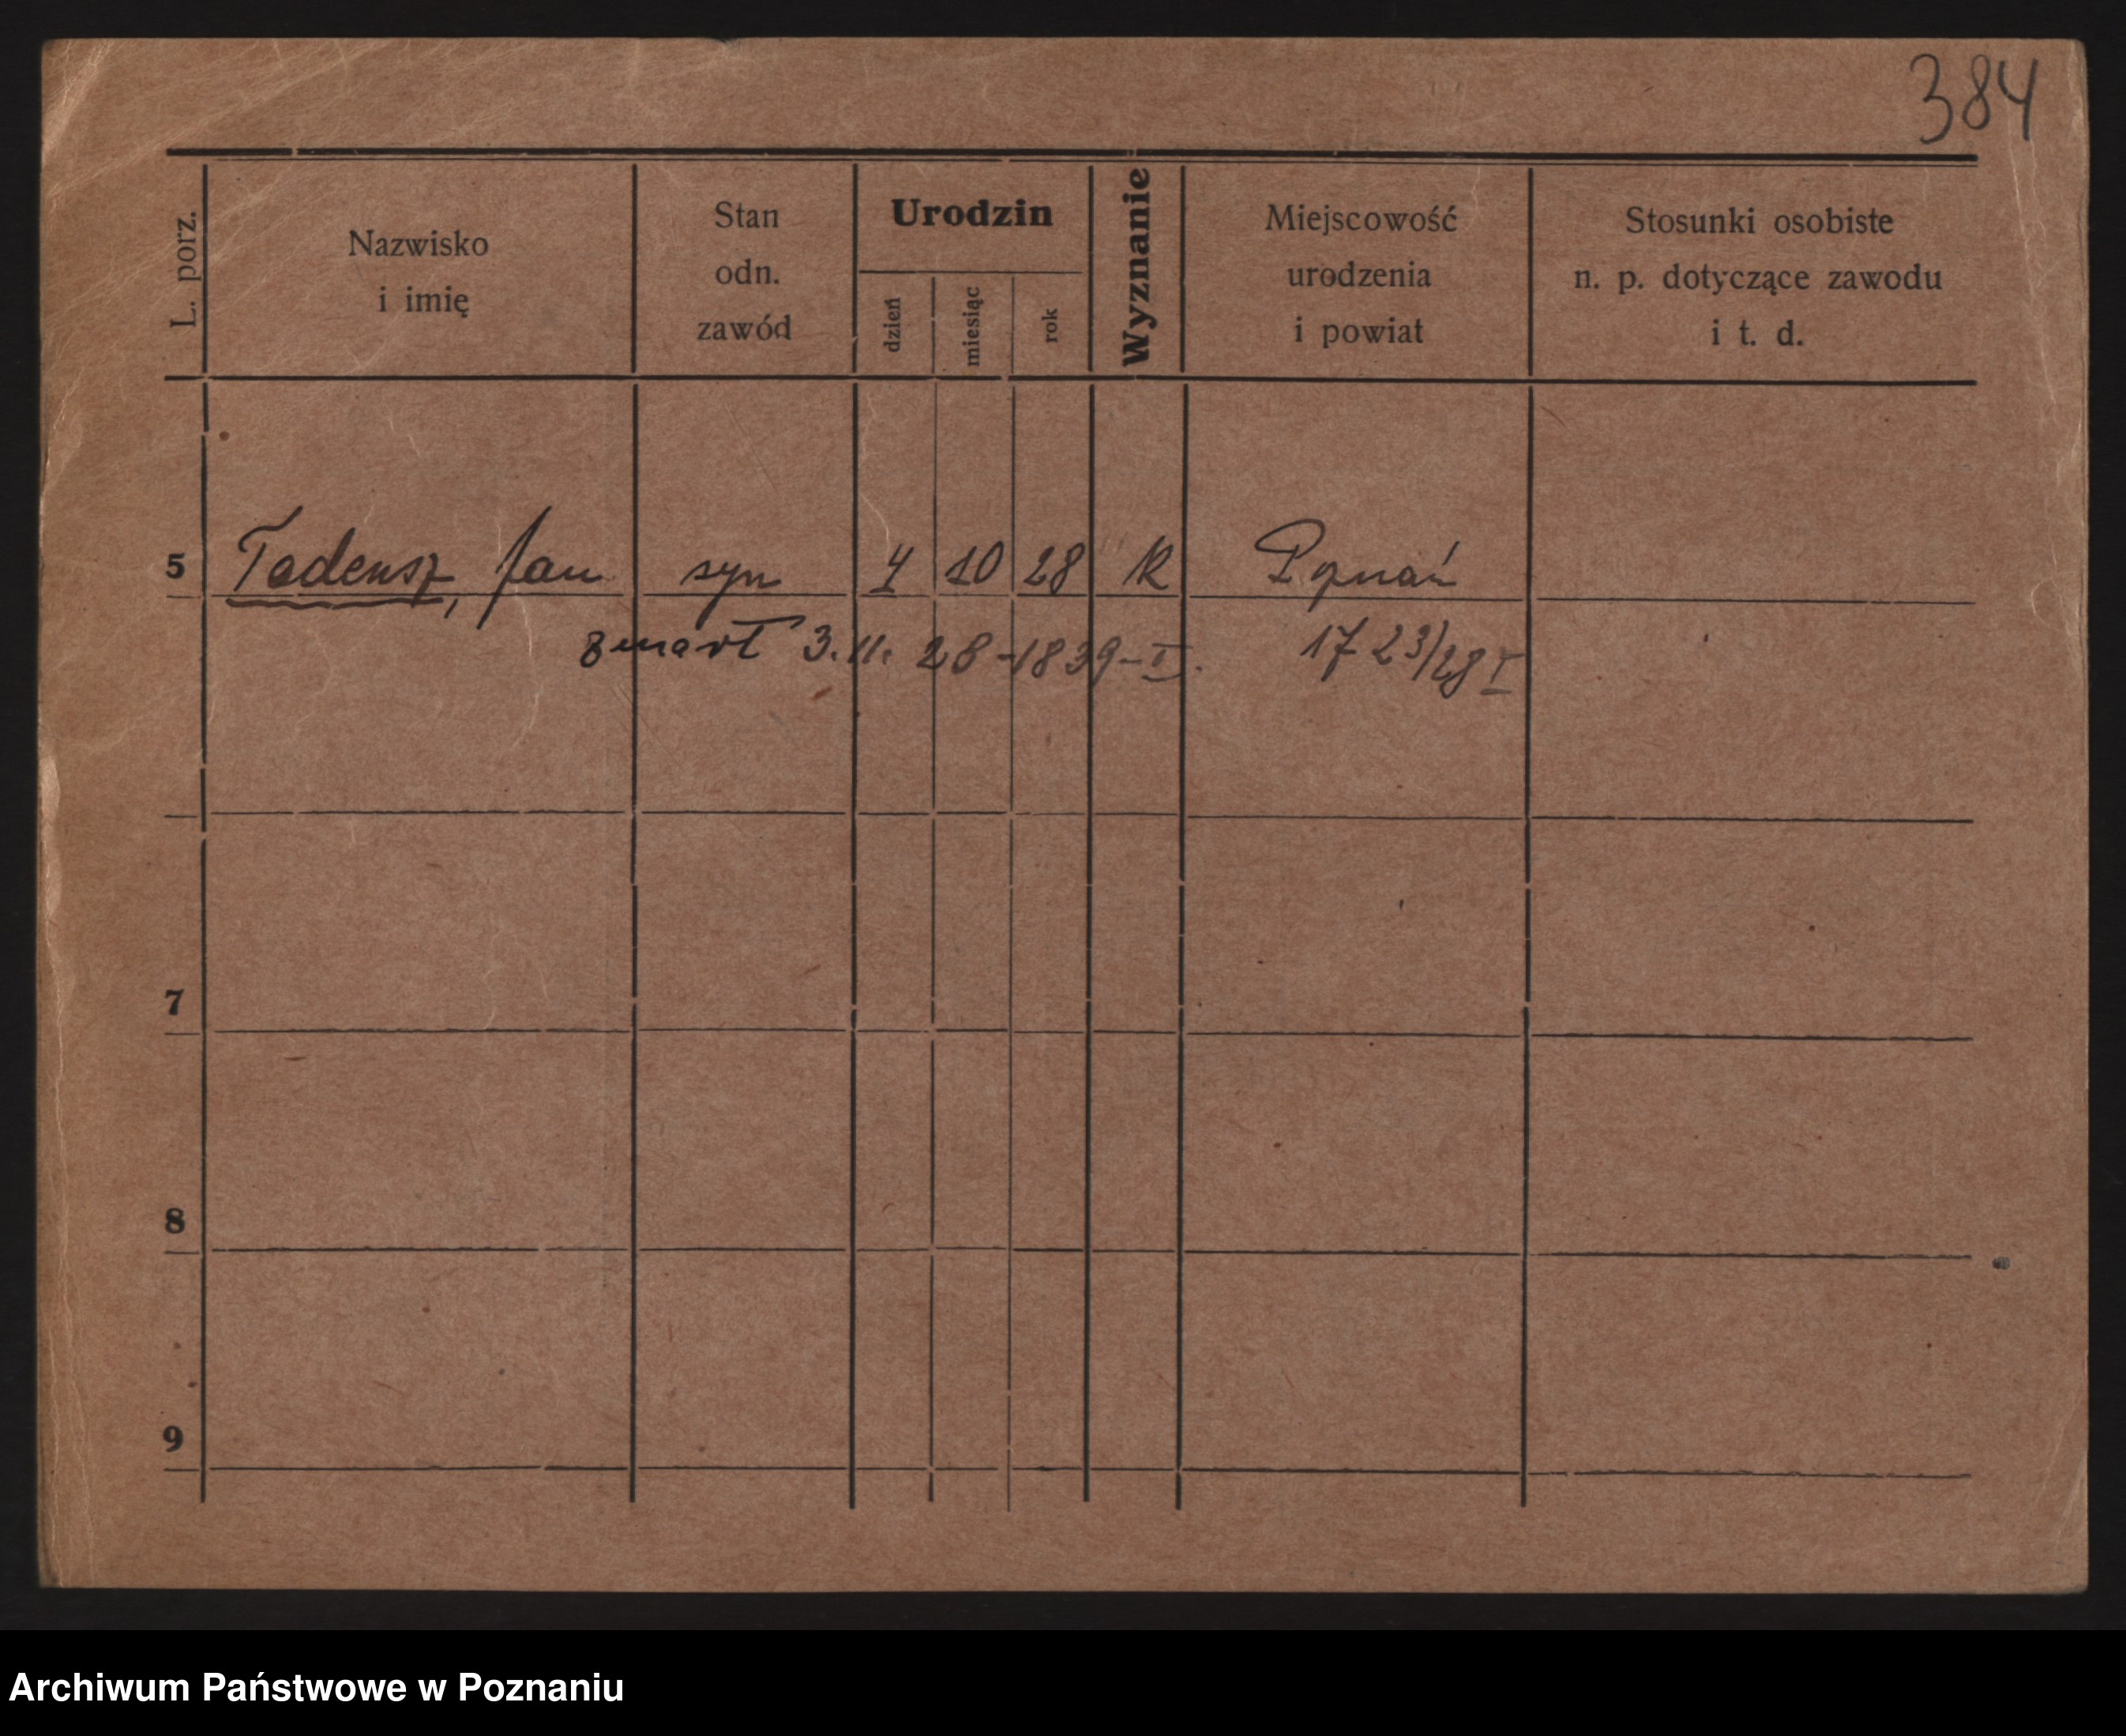 384
L. porz.
Nazwisko i imię
Stan odn. zawód
Urodzin
dzień
miesiąc
rok
Wyznanie
Miejscowość urodzenia i powiat
Stosunki osobiste n. p. dotyczące zawodu i t. d.
5 Tadeusz, Jan syn 4 10 28 k Poznań
zmarł 3. 11. 28 - 1839 - II. 1723/28 I
7
8
9
Archiwum Państwowe w Poznaniu